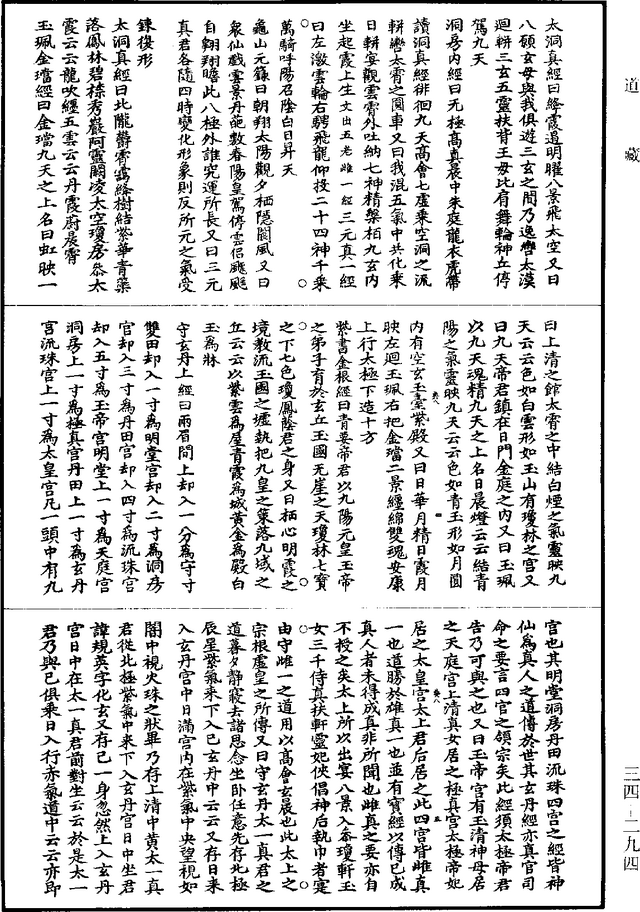 道藏
三四—二九四
太洞真經曰絳霞迴明曜八景飛太空又曰
八碩玄母與我俱遊三玄之間乃逸轡太漠
迴軿三玄五靈扶背王母比肩舞輪神丘停
駕九天
洞房內經曰无極高真晨中朱庭龍衣虎帶
讀洞真經徘徊九天高會七虛乘空洞之流
軿轡太霄之關車又曰我混五氣中共化乘
日軿宴觀雲霄外吐納七神精槃栢九玄內
坐起霞上生文出五老雌一經三元真一經
曰左激雲輪右騁飛龍仰投二十四神千乘
萬騎呼陽召陰白日昇天
龜山元籙曰朝翔太陽觀夕栖隱閬風又曰
衆仙戲雲景丹葩數春陽皇駕停雲侶飈飈
自翱翔瞻此八極外誰究運所長又曰三元
真君各隨四時變化形象則反所元之氣受
鍊復形
太洞真經曰北隴鬱霄寫絳樹結紫華青蘂
落鳳林碧榛秀巖阿靈闕凌太空瓊房叅太
霞云云龍吹纏五雲云云丹霞廚晨霄
玉珮金璫經曰金璫九天之上名曰虹映一
曰上清之館太霄之中結白煙之氣靈映九
天云云色如白雲形如玉山有瓊林之宮又
曰九天帝君鎮在日門金庭之內又曰玉珮
以九天魂精九天之上名曰晨燈云云結青
陽之氣靈映九天云云色如青玉形如月圓
內有空玄玉臺紫殿又曰日華月精日霞月
映左迴玉珮右把金璫二景纏綿雙魂安康
上行太極下造十方
紫書金根經曰青要帝君以九陽元皇玉帝
之弟子育於玄丘玉國无崖之天瓊林七寶
之下七色瓊鳳蔭君之身又曰栖心明霞之
境教流玉國之墟執把九皇之策落九域之
丘云云以紫雲為屋青霞為城黃金為殿白
玉為牀
守玄丹上經曰兩眉間上却入一八分為守寸
雙田却入一寸為明堂宮却入二寸為洞房
宮却入三寸為丹田宮却入四寸為流珠宮
却入五寸為玉帝宮明堂上一寸為天庭宮
洞房上一寸為極真宮丹田上一寸為玄丹
宮流珠宮上一寸為太皇宮凡一頭中有九
宮也其明堂洞房丹田流珠四宮之經皆神
仙為真人之道傳於世其玄丹經亦真官司
命之要言四宮之領宗矣此經須太極帝君
告乃可與之也又曰玉帝宮有玉清神母居
之天庭宮上清真女居之極真宮太極帝妃
居之太皇宮太上君后居之此四宮皆雌真
一也道勝於雄真一也並有寶經以傳已成
真人者未得成真非所聞也雌真之要亦自
不授之矣太上所以出宴八景入叅瓊軒玉
女三千侍真扶軒靈妃俠侶神后執巾者寔
由守雌一之道用以高會玄晨也此太上之
宗根虛皇之所傳又曰守玄丹太一真君之
道暮夕靜寢去諸思念坐卧任意先存北極
辰星紫氣來下入己玄丹中云云又存日來
入玄丹宮中日滿宮內在紫氣中央望視如
闇中視火珠之狀畢乃存上清中黃太一真
君從北極紫氣中來下入玄丹宮日中坐君
諱規英字化玄又存己一身忽然上入玄丹
宮日中在太一真君前對坐云云於是太一
君乃與己俱乘日入行赤氣道中云云亦即